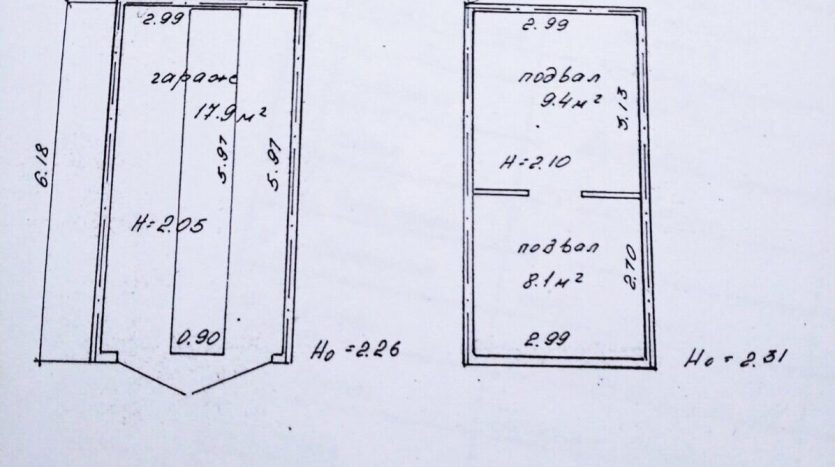 2.99
гараж
17.9 м²
6.18
5.97
5.97
H=2.05
0.90
H₀ = 2.26
2.99
подвал
9.4 м²
3.13
H=2.10
подвал
8.1 м²
2.70
2.99
H₀ = 2.31